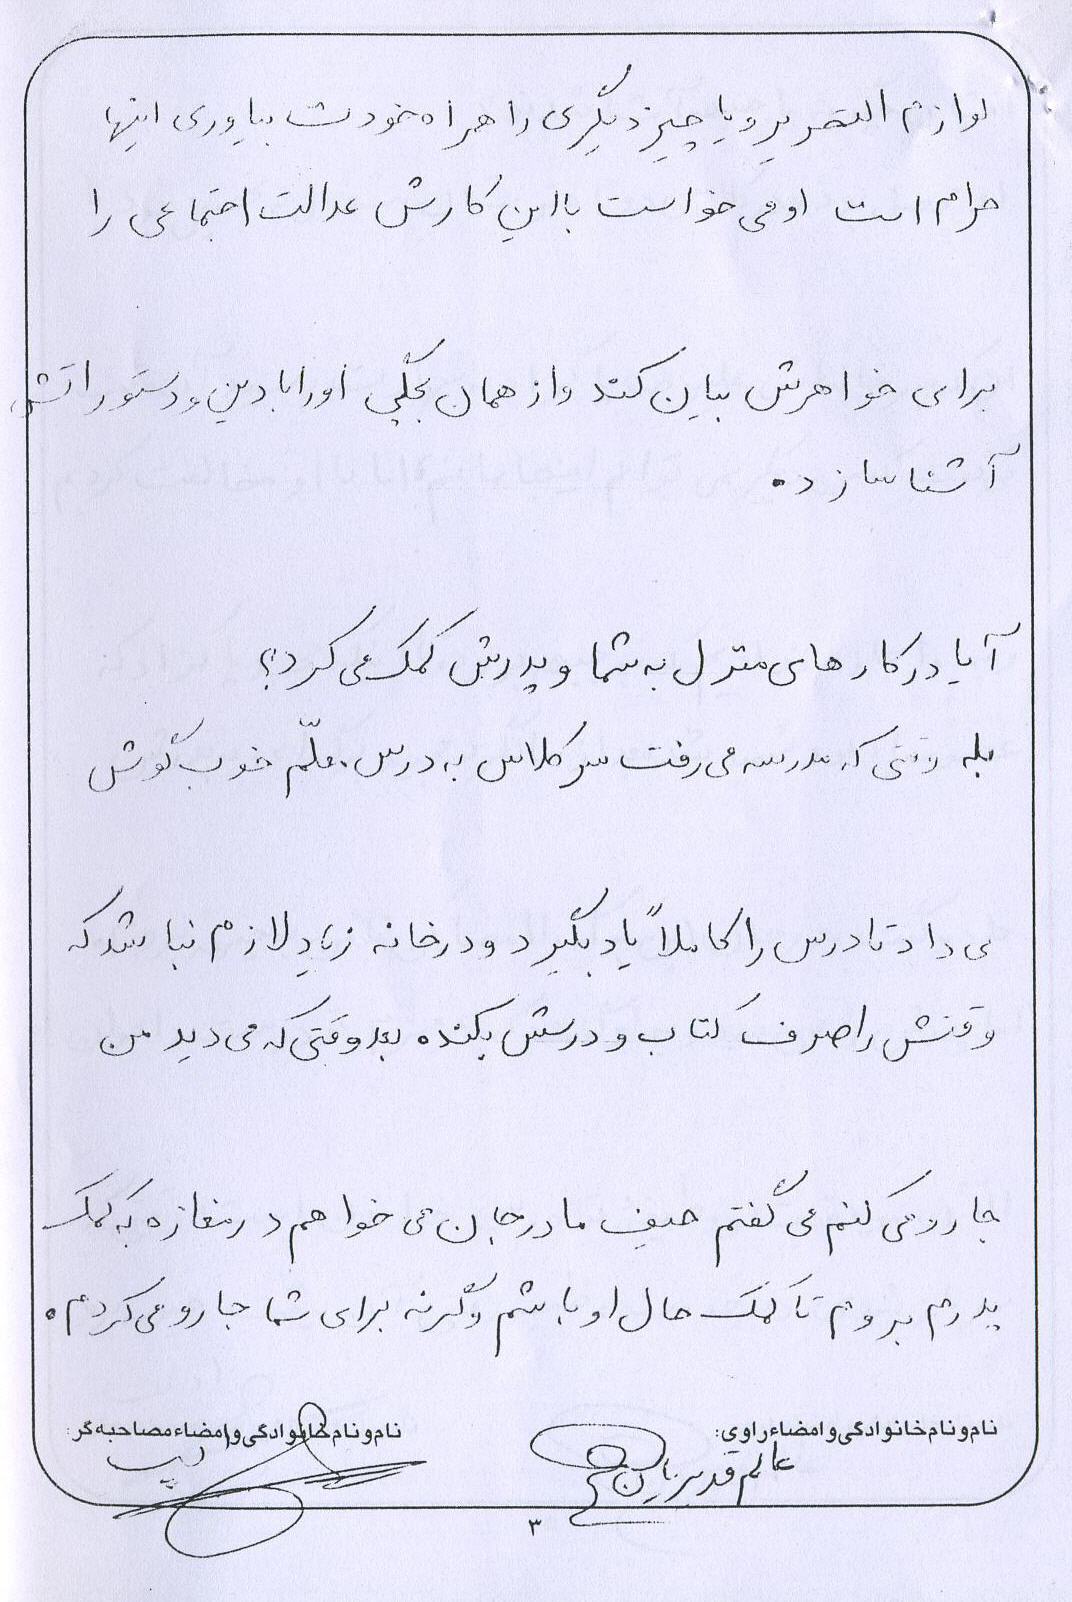 لوازم التحریر و یا چیز دیگری را همراه خودت بیاوری اینها
حرام است او می خواست با این کارش عدالت اجتماعی را
برای خواهرش بیان کند و از همان بچگی او را با دین و دستوراتش
آشنا سازد.
آیا در کارهای منزل به شما و پدرش کمک می کرد؟
بله وقتی که مدرسه می رفت سر کلاس به درس معلّم خوب گوش
می داد تا درس را کاملاً یاد بگیرد و در خانه زیاد لازم نباشد که
وقتش را صرف کتاب و درسش بکند. بعد وقتی که می دید من
جارو می کنم می گفتم حیف مادر جان می خواهم در مغازه به کمک
پدرم بروم تا کمک حال او باشم وگرنه برای شما جارو می کردم.
نام و نام خانوادگی و امضاء راوی:
نام و نام خانوادگی و امضاء مصاحبه گر:
عالم قدیریان
۳